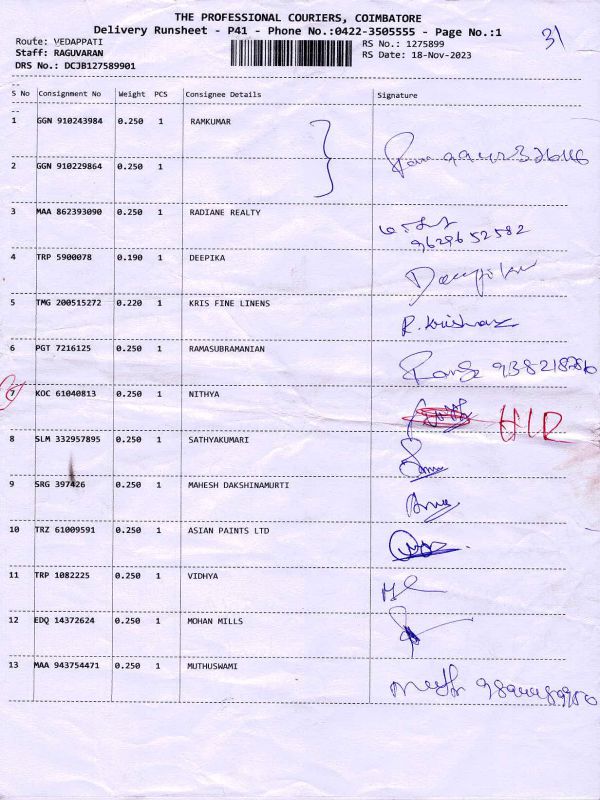 THE PROFESSIONAL COURIERS, COIMBATORE
Delivery Runsheet - P41 - Phone No.:0422-3505555 - Page No.:1
31
Route: VEDAPPATI
RS No.: 1275899
Staff: RAGUVARAN
RS Date: 18-Nov-2023
DRS No.: DCJB127589901
S No Consignment No Weight PCS Consignee Details Signature
1 GGN 910243984 0.250 1 RAMKUMAR
2 GGN 910229864 0.250 1
3 MAA 862393090 0.250 1 RADIANE REALTY
9629652582
4 TRP 5900078 0.190 1 DEEPIKA
5 TMG 200515272 0.220 1 KRIS FINE LINENS R. Krishnaz
6 PGT 7216125 0.250 1 RAMASUBRAMANIAN
7 KOC 61040813 0.250 1 NITHYA
8 SLM 332957895 0.250 1 SATHYAKUMARI
9 SRG 397426 0.250 1 MAHESH DAKSHINAMURTI
10 TRZ 61009591 0.250 1 ASIAN PAINTS LTD
11 TRP 1082225 0.250 1 VIDHYA
12 EDQ 14372624 0.250 1 MOHAN MILLS
13 MAA 943754471 0.250 1 MUTHUSWAMI